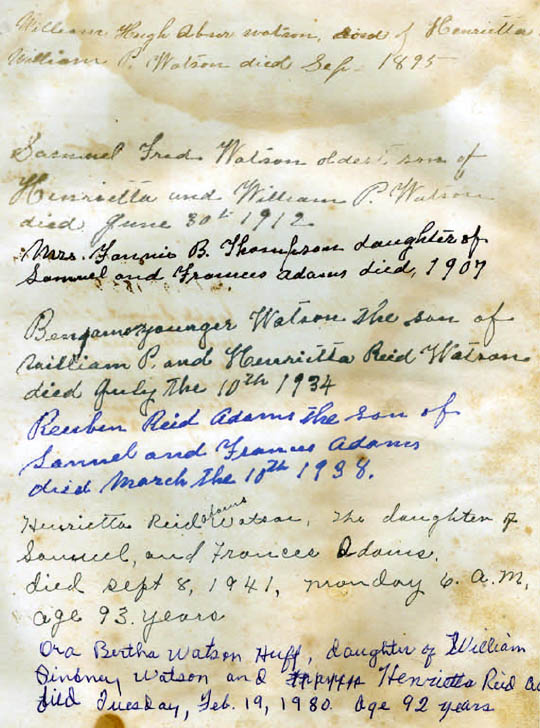 William Hugh Abur Watson, died of Henrietta
William P. Watson died Sep - 1895
Samuel Fred Watson oldest son of
Henrietta and William P. Watson
died June 30th 1912
Mrs. Fannie B. Thompson daughter of
Samuel and Frances Adams died, 1907
Younger Watson the son of
William P. and Henrietta Reid Watson
died July the 10th 1934
Reuben Reid Adams the son of
Samuel and Frances Adams
died March the 10th 1938.
Henrietta Reid Adams Watson, the daughter of
Samuel, and Frances Adams.
died Sept 8, 1941, monday 6. A.M,
age 93. years
Ora Bertha Watson Huff, daughter of William
Pinkney Watson and Henrietta Reid
died Tuesday, Feb. 19, 1980. age 92 years